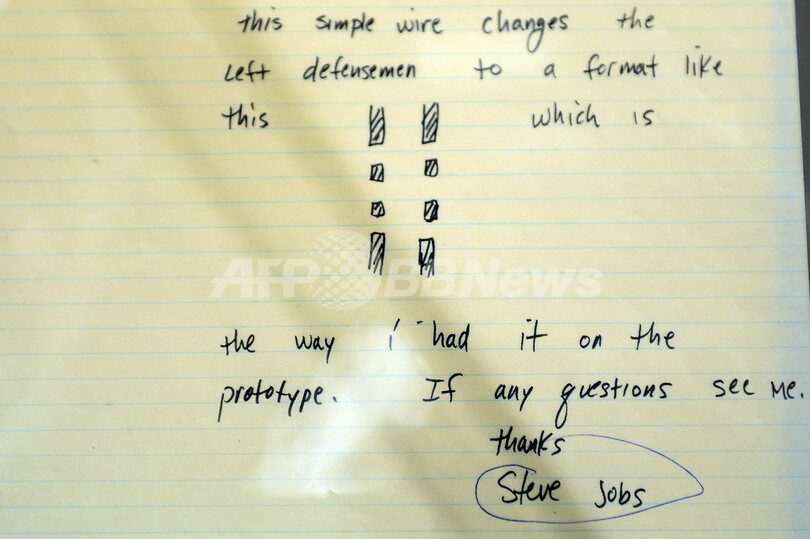 this simple wire changes the
Left defensemen to a format like
this which is
AFP BBNews
the way i had it on the
prototype. If any questions see me.
thanks
Steve jobs